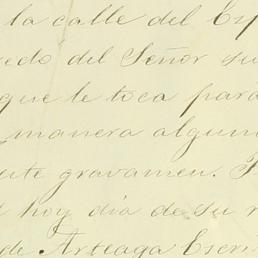 la calle del Esp
edo del Señor su
que le toca para
manera alguna
este gravamen.
hoy dia de su
de Arteaga Escri